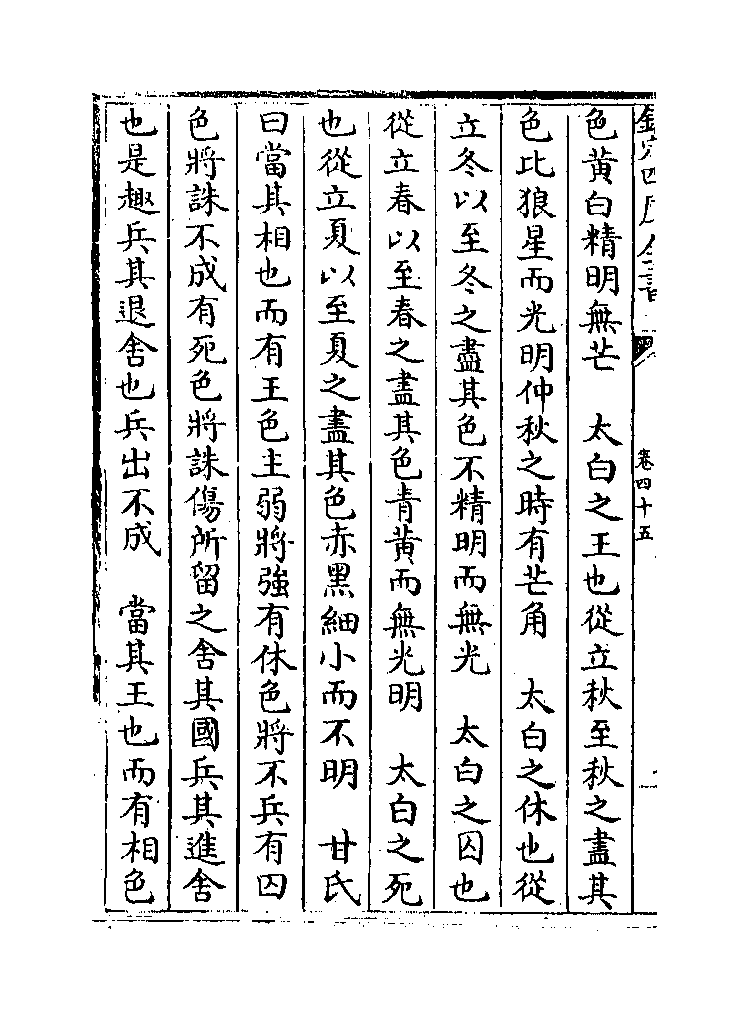 欽定四庫全書
卷四十五
色黄白精明無芒　太白之王也從立秋至秋之盡其
色比狼星而光明仲秋之時有芒角　太白之休也從
立冬以至冬之盡其色不精明而無光　太白之囚也
從立春以至春之盡其色青黄而無光明　太白之死
也從立夏以至夏之盡其色赤黑細小而不明　甘氏
曰當其相也而有王色主弱將強有休色將不兵有囚
色將誅不成有死色將誅傷所留之舍其國兵其進舍
也是趣兵其退舍也兵出不成　當其王也而有相色